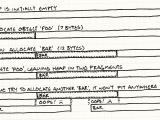 IS INITIALLY EMPTY
ALLOCATE OBJECT 'FOO' (7 BYTES)
ALLOCATE 'BAR' (12 BYTES)
BAR
'FOO', LEAVING HEAP IN TWO FRAGMENTS
BAR
WE TRY TO ALLOCATE ANOTHER 'BAR', IT WON'T FIT ANYWHERE
OOPS! 2
BAR
OOPS! 2